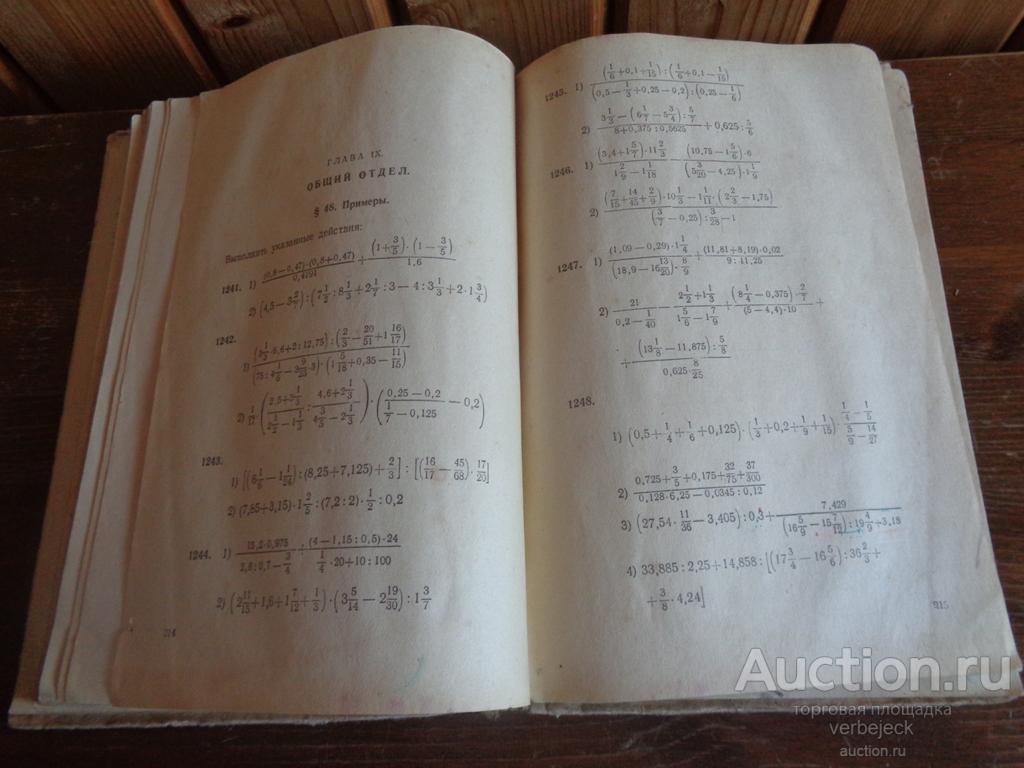 ГЛАВА IX.
ОБЩИЙ ОТДЕЛ.
§ 48. Примеры.
Выполнить указанные действия:
1241. 1) ((0,8 − 0,47)·(0,8+0,47))/0,4291 + ((1+3/5)·(1 − 3/5))/1,6
2) (4,5 − 3 2/7) : (7 1/2 : 8 1/3 + 2 1/7 : 3 − 4 : 3 1/3 + 2·1 3/4)
1242.
2) 1/12 ((2,5+3 1/3)/(2 1/2 − 1 1/3) : (4,6+2 1/3)/(4 3/3 − 2 1/3)) · ((0,25 − 0,2)/(1/7 − 0,125) − 0,2)
1243.
1) [(6 1/6 − 1 1/24) : (8,25+7,125) + 2/3] : [(16/17 − 45/68)·17/20]
2) (7,85+3,15)·1 2/5 : (7,2 : 2)·1/2 : 0,2
1244. 1) (15,2·0,975)/(2,8 : 0,7 − 3/4) + ((4 − 1,15 : 0,5)·24)/(1/4·20+10 : 100)
2) (2 11/15 + 1,6 + 1 7/12 + 1/3)·(3 5/14 − 2 19/30) : 1 3/7
214
1245. 1) ((1/6 + 0,1 + 1/15) : (1/6 + 0,1 − 1/15))/((0,5 − 1/3 + 0,25 − 0,2) : (0,25 − 1/6))
2) (3 1/3 − (6 1/7 − 5 3/4) : 5/7)/(8+0,375 : 0,5625) + 0,625 : 5/6
1246. 1) ((3,4+1 5/7)·11 2/3)/(1 2/9 − 1 1/18) − ((10,75 − 1 5/6)·6)/((5 3/20 − 4,25)·1 1/9)
2) ((7/15 + 14/45 + 2/9)·10 1/3 − 1 1/11·(2 2/3 − 1,75))/((3/7 − 0,25) : 3/28 − 1)
1247. 1) ((1,09 − 0,29)·1 1/4)/((18,9 − 16 13/20)·8/9) + ((11,81+8,19)·0,02)/(9 : 11,25)
2) 21/(0,2 − 1/40) − (2 1/2 + 1 1/3)/(1 5/6 − 1 7/9) + ((8 1/4 − 0,375)·2/7)/((5 − 4,4)·10) +
+ ((13 1/8 − 11,875) : 5/8)/(0,625·8/25)
1248.
1) (0,5 + 1/4 + 1/6 + 0,125)·(1/3 + 0,2 + 1/9 + 1/15)·(1/4 − 1/5)/(5/9 − 14/27)
2) (0,725 + 3/5 + 0,175 + 32/75 + 37/300)/(0,128·6,25 − 0,0345 : 0,12)
3) (27,54·11/36 − 3,405) : 0,3 + 7,429/((16 5/9 − 15 5/12) : 19 4/9 + 3,18)
4) 33,885 : 2,25 + 14,858 : [(17 3/4 − 16 5/6) : 36 2/3 +
+ 3/8·4,24]
215
Auction.ru
торговая площадка
verbejeck
auction.ru